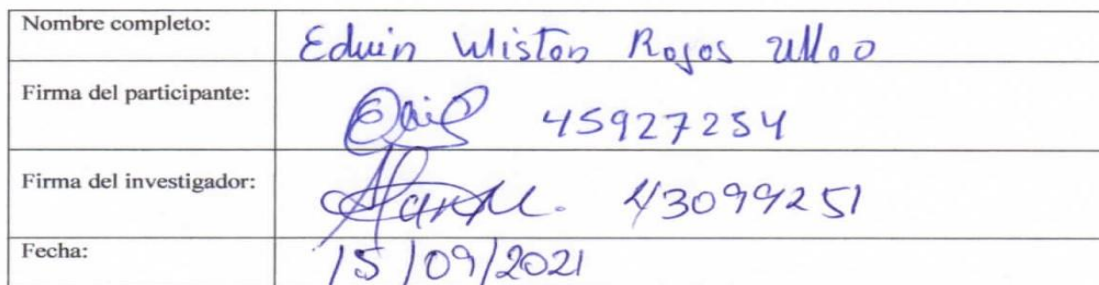 Nombre completo: Edwin Wiston Rojas Ulloa
Firma del participante: 45927254
Firma del investigador: 43099251
Fecha: 15/09/2021